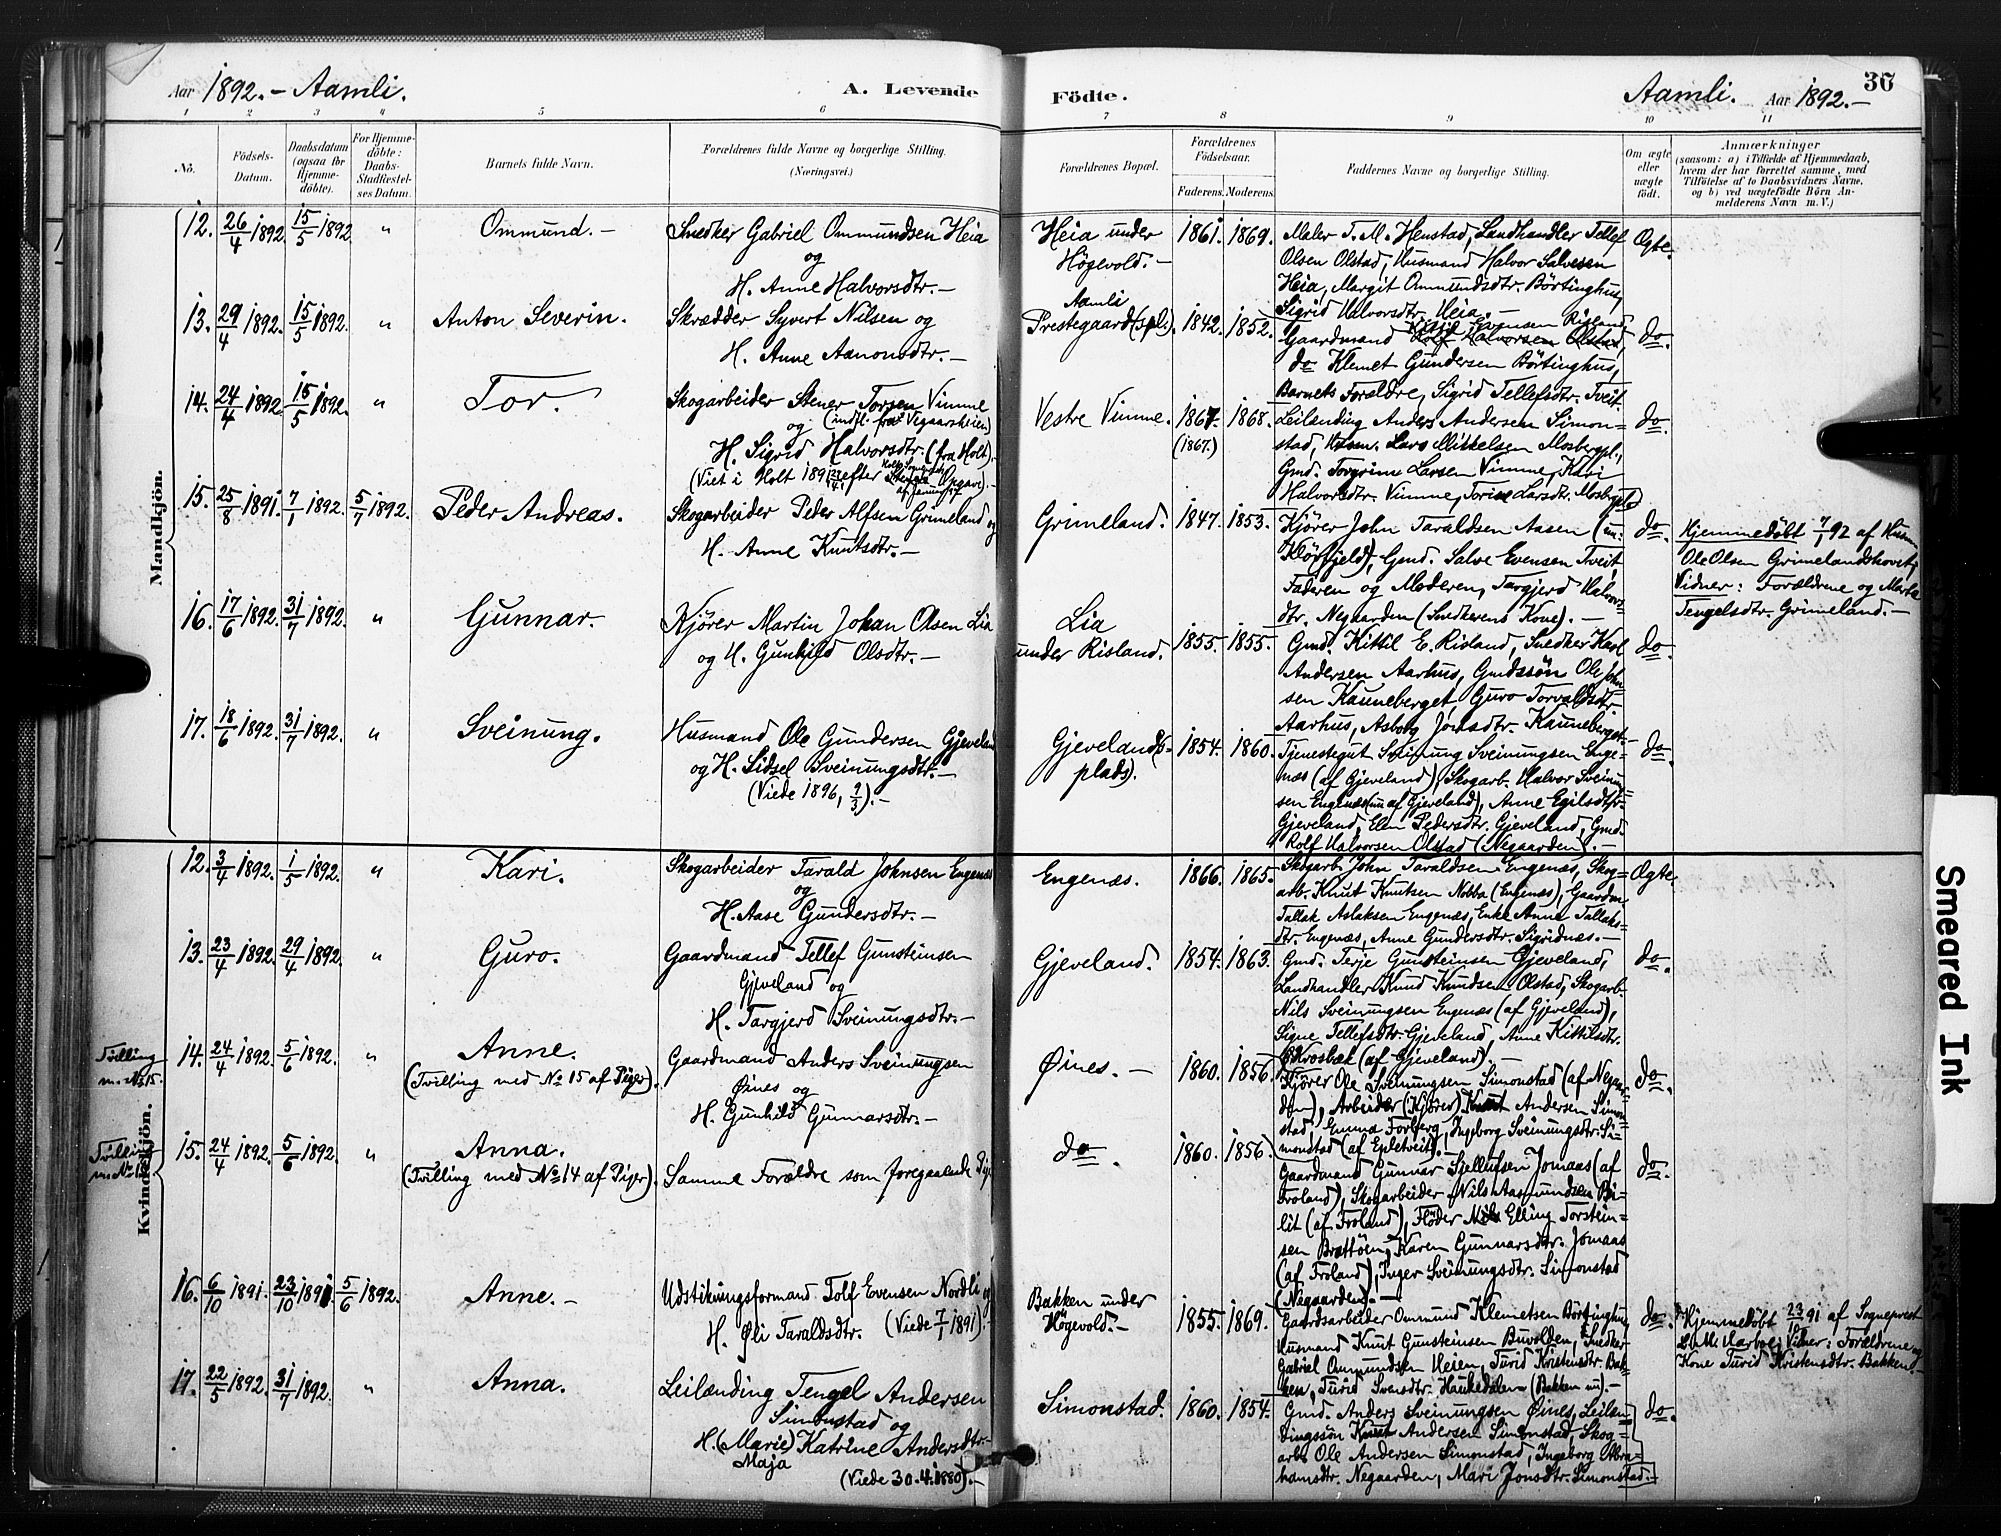 Aar 1892. – Aamli.
A. Levende
Födte.
Aamli. Aar 1892. –
36
1 2 3 4 5 6 7 8 9 10 11
No.
Födsels-Datum.
Daabsdatum (ogsaa for Hjemme-döbte).
For Hjemme-döbte: Daabs-Stadfæstel-ses Datum.
Barnets fulde Navn.
Forældrenes fulde Navne og borgerlige Stilling.
(Næringsvei.)
Forældrenes Bopæl.
Forældrenes Födselsaar.
Faderens. Moderens.
Faddernes Navne og borgerlige Stilling.
Om ægte eller uægte födt.
Anmærkninger
(saasom: a) i Tilfælde af Hjemmedaab,
hvem der har forrettet samme, med
Tilföielse af to Daabsvidners Navne,
og b) ved uægtefödte Börn An-
melderens Navn m. V.)
Mandkjön.
12. 26/4 1892. 15/5 1892 " Ommund. –
Snedker Gabriel Ommundsen Heia
og
H. Anne Halvorsdtr. –
Heia under
Högevold. –
1861. 1869.
Maler T. M. Henstad, Landhandler Tellef
Olsen Olstad, Husmand Halvor Salvesen
Heia, Margit Ommundsdtr. Börtinghus,
Sigrid Halvorsdtr. Heia. –
Ægte.
13. 29/4 1892. 15/5 1892. " Anton Severin.
Skrædder Syvert Nilsen og
H. Anne Aanonsdtr. –
Aamli
Prestegaard (spl.).
1842. 1852.
Kittil Evensen Risland
Gaardmand Rolf Halvorsen Olstad,
do Klemet Gundersen Börtinghus,
Barnets Forældre, Sigrid Tellefsdtr. Tveit.
do.
14. 24/4 1892. 15/5 1892. " Tor.
Skogarbeider Stener Torsen Vimme
og (indfl. fra Vegaarsheien)
H. Sigrid Halvorsdtr. (fra Holt).
(Viet i Holt 1891 efter
Vestre Vimme.
1867. 1868.
(1867.)
Leilænding Anders Andersen Simon=
stad, Husm. Lars Mikkelsen Mosbergpl.,
Gmd. Torgrim Larsen Vimme, Kari
Halvorsdtr. Vimme, Torine Larsdtr. Mosbergpl.
do.
15. 25/8 1891. 7/1 1892. 5/7 1892. Peder Andreas.
Skogarbeider Peder Alfsen Grimeland og
H. Anne Knutsdtr. –
Grimeland. 1847. 1853.
Kjörer John Taraldsen Aasen (un=
Klörfjeld), Gmd. Salve Evensen Tveit,
Faderen og Moderen, Targjerd Halvors=
dtr. Negaarden (Snedkerens Kone). –
do.
Hjemmedöbt 7/1 92 af Husm
Ole Olsen Grimelandshovet,
Vidner: Forældrene og Marta
Tengelsdtr. Grimeland. –
16. 17/6 1892. 31/7 1892. " Gunnar.
Kjörer Martin Johan Olsen Lia
og H. Gunhild Olsdtr. –
Lia
under Risland.
1855. 1855.
Gmd. Kittil E. Risland, Snedker Karl
Andersen Aarhus, Gmdssön Ole John
sen Kauneberget, Guro Torvaldsdtr.
Aarhus, Asborg Jonsdtr. Kauneberget. –
do.
17. 18/6 1892. 31/7 1892. " Sveinung.
Husmand Ole Gundersen Gjeveland
og H. Sidsel Sveinungsdtr. –
(Viede 1896, 9/3). –
Gjeveland (s-
plads).
1854. 1860.
Tjenestegut Sveinung Sveinungsen Enge=
næs (af Gjeveland), Skogarb. Halvor Sveinung=
sen Engenæs (nu af Gjeveland), Anne Egilsdtr.
Gjeveland, Elen Pedersdtr. Gjeveland, Gmd.
Rolf Halvorsen Olstad (Negaarden). –
do.
Kvindekjön.
12. 3/4 1892. 1/5 1892. " Kari.
Skogarbeider Tarald Johnsen Engenæs
og
H. Aase Gundersdtr. –
Engenæs. 1866. 1865.
Skogarb. John Taraldsen Engenæs, Skog=
arb. Knut Knutsen Nobba (Engenæs), Gaardm
Tallak Aslaksen Engenæs, Enke Anne Tallaks=
dtr. Engenæs, Anne Gundersdtr. Sigridnæs. –
Ægte
13. 23/4 1892. 29/4 1892. " Guro.
Gaardmand Tellef Gunsteinsen
Gjeveland og
H. Targjerd Sveinungsdtr. –
Gjeveland. 1854. 1863.
Gmd. Terje Gunsteinsen Gjeveland,
Landhandler Knud Knudsen Olstad, Skogarb.
Nils Sveinungsen Engenæs (af Gjeveland),
Signe Tellefsdtr. Gjeveland, Anne Kittilsdtr.
Krosbæk (af Gjeveland). –
do.
Tvilling
m. No 15.
14. 24/4 1892. 5/6 1892. " Anne.
(Tvilling med No 15 af Piger).
Gaardmand Anders Sveinungsen
Øines og
H. Gunhild Gunnarsdtr. –
Øines. – 1860. 1856.
Kjörer Ole Sveinungsen Simonstad (af Negaar
den), Arbeider (Kjörer) Knut Andersen Simon
stad, Emma Forberg, Ingeborg Sveinungsdtr. Si=
monstad (af Epletveit). –
do.
Tvilling
m. No 14.
15. 24/4 1892. 5/6 1892. " Anna.
(Tvilling med No 14 af Piger).
Samme Forældre som foregaaende Pige
do. 1860. 1856.
Gaardmand Gunnar Sjellufsen Jomaas (af
Froland), Skogarbeider Nils Aasmundsen Bi=
lit (af Froland), Flöder Elling Torstein=
sen Brattöen, Karen Gunnarsdtr. Jomaas
(af Froland), Inger Sveinungsdtr. Simonstad
(Negaarden). –
do.
16. 6/10 1891. 23/10 1891. 5/6 1892. Anne. –
Udstikningsformand Tolf Evensen Nordli og
H. Øli Taraldsdtr. (Viede 7/1 1891). –
Bakken under
Högevold. –
1855. 1869.
Gaardsarbeider Ommund Klemetsen Börtinghus,
Husmand Knut Gunsteinsen Buvolden, Snedker
Gabriel Ommundsen Heien, Turid Kristensdtr. Bak=
ken, Turid Svensdtr. Haukedalen (Bakken nu). –
do.
Hjemmedöbt 23/10 91 af Sogneprest
Harboe, Vidner: Forældrene og
Kone Turid Kristensdtr. Bakken.
17. 22/5 1892. 31/7 1892. " Anna.
Leilænding Tengel Andersen
Simonstad og
H. (Marie) Katrine Andersdtr. –
Maja
(Viede 30.4.1880). –
Simonstad. 1860. 1854.
Gmd. Anders Sveinungsen Øines, Leilæn=
dingssön Knut Andersen Simonstad, Skog=
arb. Ole Andersen Simonstad, Ingeborg Abra
hamsdtr. Negaarden, Mari Jonsdtr. Simonstad. –
do.
Smeared Ink